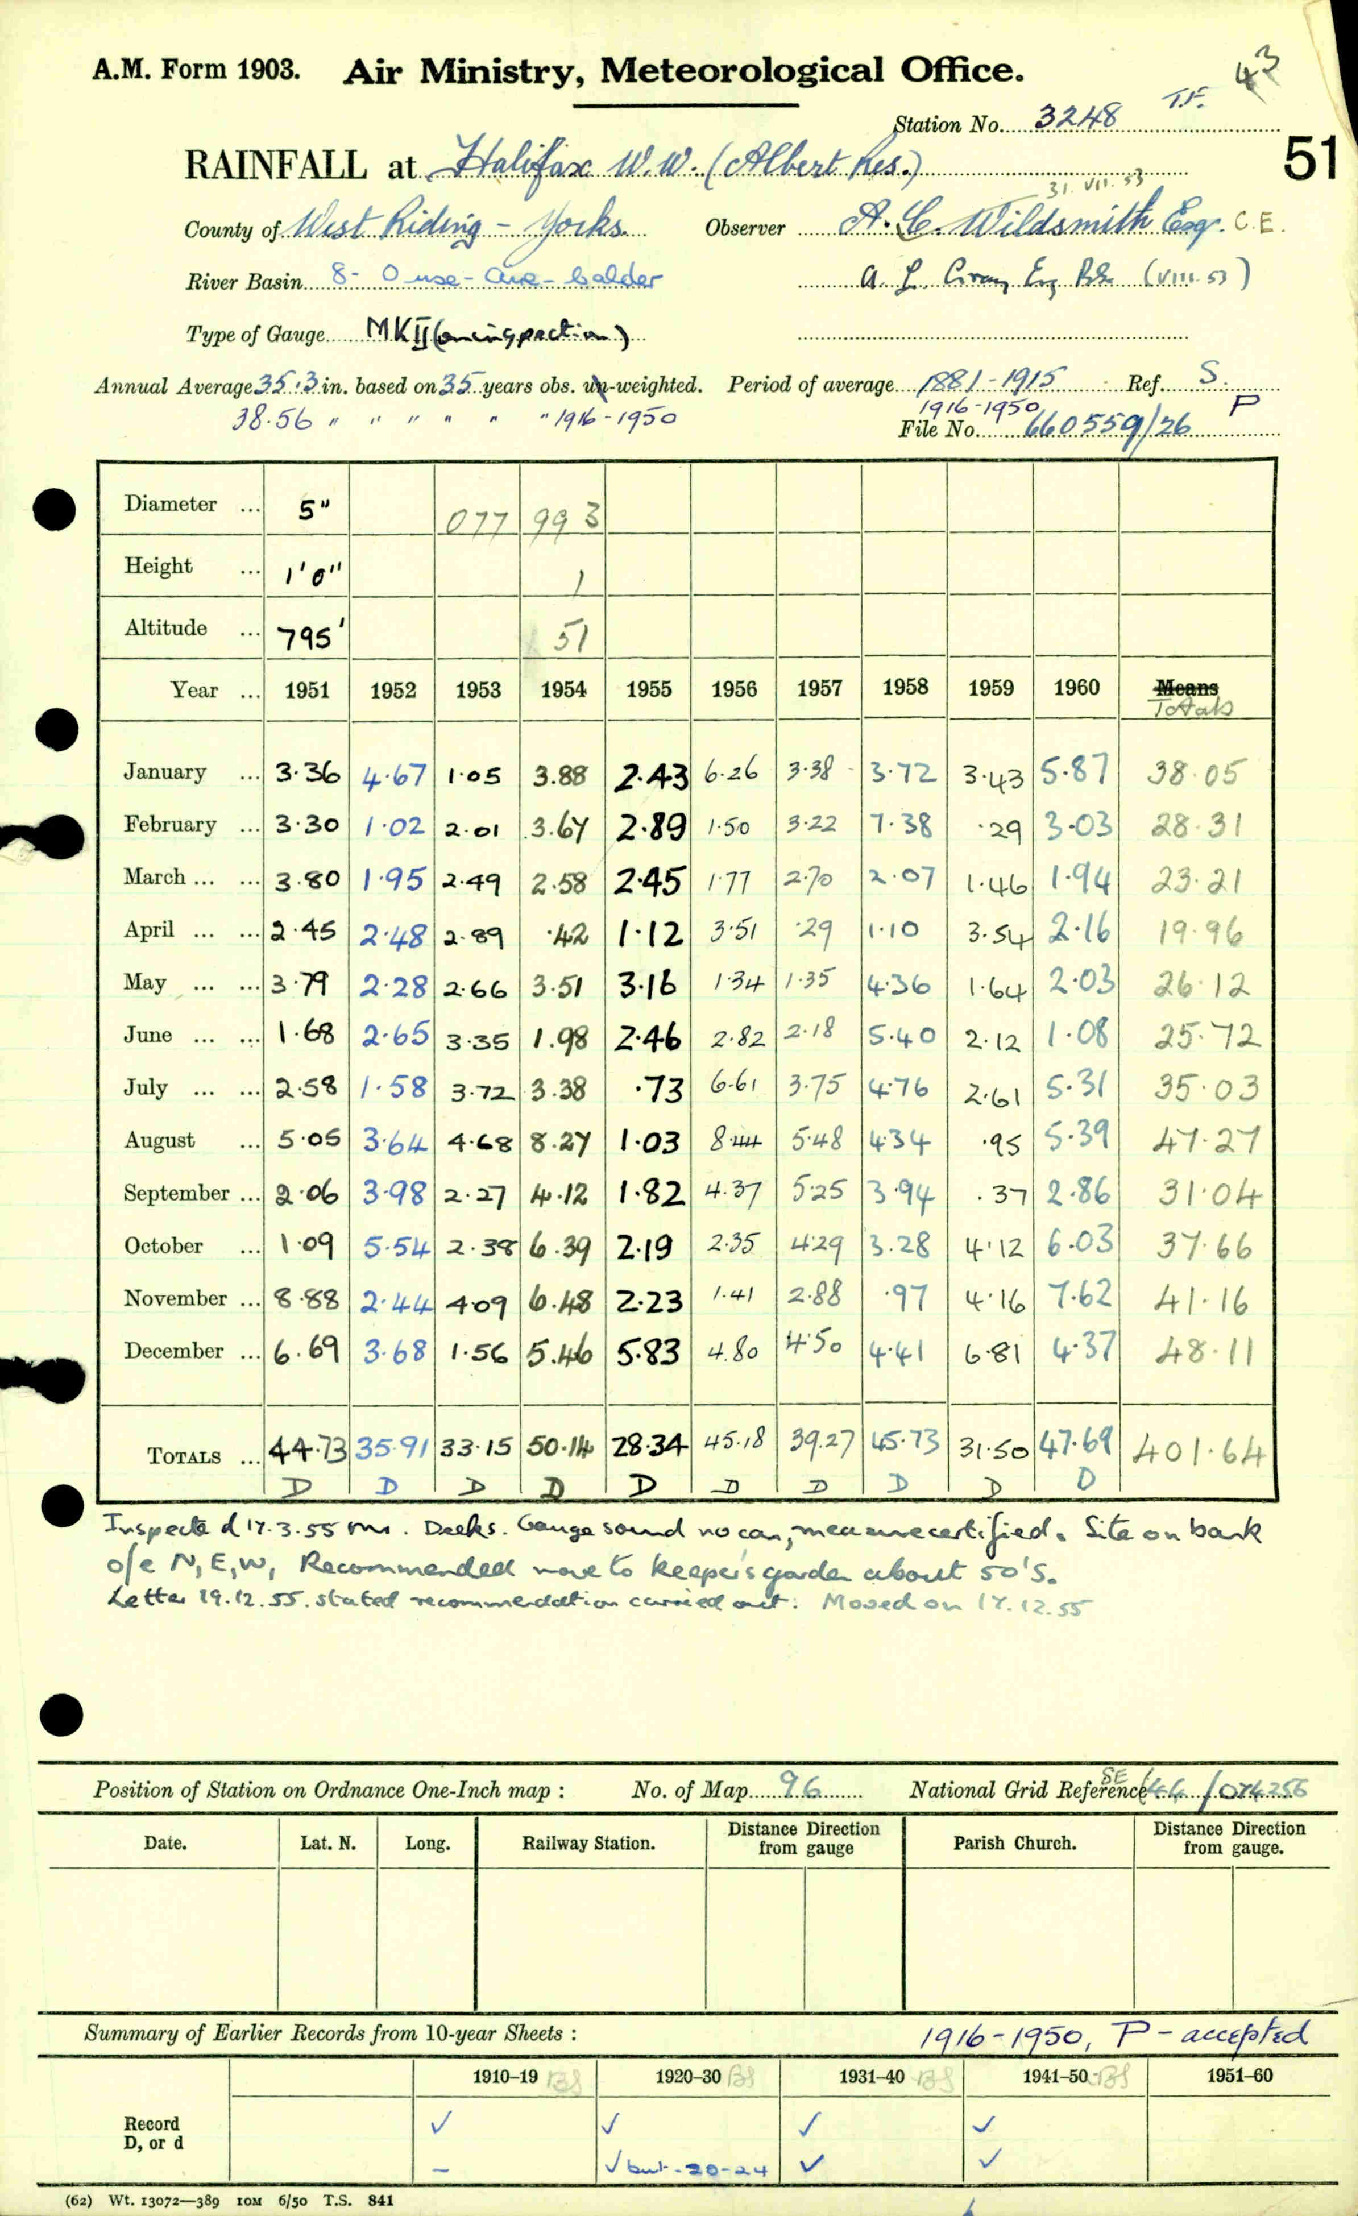 43
A.M. Form 1903. Air Ministry, Meteorological Office.
T.F.
Station No. 3248
51
RAINFALL at Halifax W.W. (Albert Res.)
31. VII. 53
County of West Riding - Yorks. Observer A. C. Wildsmith Esqr. C.E.
River Basin 8- Ouse - Aire - Calder A. L. Esq BSc (VIII. 53)
Type of Gauge MK II (on inspection)
Annual Average 35.3 in. based on 35 years obs. un-weighted. Period of average 1881-1915 Ref. S.
38.56 " " " " " " 1916-1950 1916-1950 P
File No. 660559/26
Diameter ... 5" 077 99 3
Height ... 1'0" 1
Altitude ... 795' 51
Year ... 1951 1952 1953 1954 1955 1956 1957 1958 1959 1960 Means
Totals
January ... 3.36 4.67 1.05 3.88 2.43 6.26 3.38 3.72 3.43 5.87 38.05
February ... 3.30 1.02 2.01 3.64 2.89 1.50 3.22 7.38 .29 3.03 28.31
March ... ... 3.80 1.95 2.49 2.58 2.45 1.77 2.70 2.07 1.46 1.94 23.21
April ... ... 2.45 2.48 2.89 .42 1.12 3.51 .29 1.10 3.54 2.16 19.96
May ... ... 3.79 2.28 2.66 3.51 3.16 1.34 1.35 4.36 1.64 2.03 26.12
June ... ... 1.68 2.65 3.35 1.98 2.46 2.82 2.18 5.40 2.12 1.08 25.72
July ... ... 2.58 1.58 3.72 3.38 .73 6.61 3.75 4.76 2.61 5.31 35.03
August ... 5.05 3.64 4.68 8.27 1.03 8.44 5.48 4.34 .95 5.39 47.27
September ... 2.06 3.98 2.27 4.12 1.82 4.37 5.25 3.94 .37 2.86 31.04
October ... 1.09 5.54 2.38 6.39 2.19 2.35 4.29 3.28 4.12 6.03 37.66
November ... 8.88 2.44 4.09 6.48 2.23 1.41 2.88 .97 4.16 7.62 41.16
December ... 6.69 3.68 1.56 5.46 5.83 4.80 4.50 4.41 6.81 4.37 48.11
TOTALS ... 44.73 35.91 33.15 50.14 28.34 45.18 39.27 45.73 31.50 47.69 401.64
D D D D D D D D D D
Inspected 17.3.55 Mr. Deeks. Gauge sound no can, measure certified. Site on bank
o/e N, E, W, Recommended move to keeper's garden about 50'S.
Letter 19.12.55. stated recommendation carried out. Moved on 17.12.55
Position of Station on Ordnance One-Inch map : No. of Map 96 National Grid Reference SE 44/074256
Date. Lat. N. Long. Railway Station. Distance from Direction gauge Parish Church. Distance from Direction gauge.
Summary of Earlier Records from 10-year Sheets : 1916-1950, P - accepted
1910–19 BS 1920–30 BS 1931–40 BS 1941–50 BS 1951–60
Record ✓ ✓ ✓ ✓
D, or d
– ✓ but - 20-24 ✓ ✓
(62) Wt. 13072—389 10M 6/50 T.S. 841